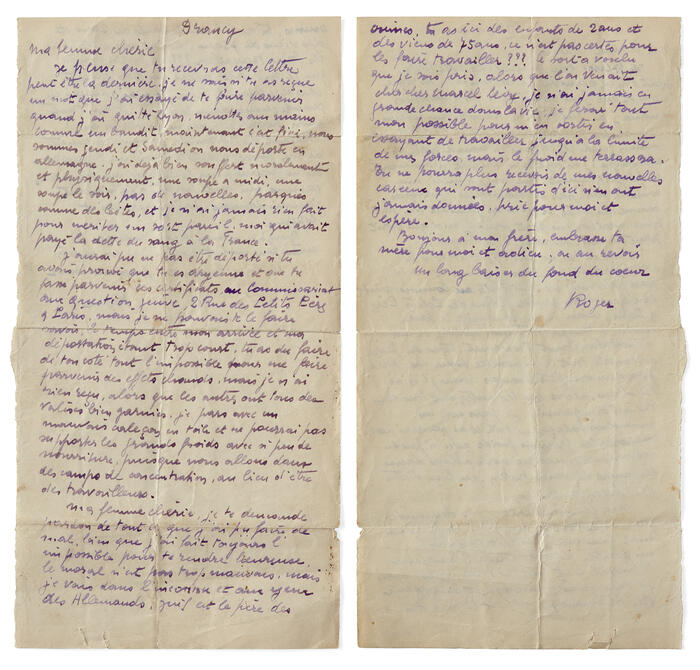 Drancy
Ma femme chérie
Je pense que tu recevras cette lettre
peut être la dernière, je ne sais si tu as reçue
un mot que j'ai essayé de te faire parvenir
quand j'ai quitté Lyon, menottes aux mains
comme un bandit maintenant c'est fini, nous
sommes jeudi et Samedi on nous déporte en
allemagne. j'ai déjà bien souffert moralement
et physiquement, une soupe a midi, une
soupe le soir, pas de nouvelles, parqués
comme des bêtes, et je n'ai jamais rien fait
pour meriter un sort pareil, moi qui avait
payé la dette du sang à la France.
J'aurai pu ne pas être déporté si tu
avais prouvé que tu es aryenne et que tu
fasse parvenir les certificats au Commissariat
aux question juive, 2 Rue des Petits Pères
à Paris, mais je ne pouvais te le faire
savoir, le temps entre mon arrivée et ma
déportation étant trop court, tu as du faire
de ton coté tout l'impossible pour me faire
parvenir des effets chauds, mais je n'ai
rien reçu, alors que les autres ont tous des
valises bien garnies, je pars avec un
mauvais caleçon en toile et ne pourrai pas
supporter les grands froids avec si peu de
nourriture, puisque nous allons dans
des camps de concentration, au lieu d'être
des travailleurs.
Ma femme chérie, je te demande
pardon de tout ce que j'ai pu faire de
mal, bien que j'ai fait toujours l'
impossible pour te rendre heureuse
le moral n'est pas trop mauvais, mais
je vais dans l'inconnu et aux yeux
des Allemands, qu'il est le père des
ouines, tu as ici des enfants de 2 ans et
des vieux de 75 ans, ce n'est pas certes pour
les faire travailler ???, le sort a voulu
que je sois pris, alors que l'on venait
chercher marcel levy, je n'ai jamais eu
grande chance dans la vie, je ferai tout
mon possible pour m'en sortir en
essayant de travailler jusqu'à la limite
de mes forces, mais le froid me terrassera.
Tu ne pourra plus recevoir de mes nouvelles
car ceux qui sont partis d'ici n'en ont
jamais données, prie pour moi et
espère.
Bonjour à mon frère, embrasse ta
mère pour moi et adieu, ou au revoir
un long baiser du fond du coeur
Roger